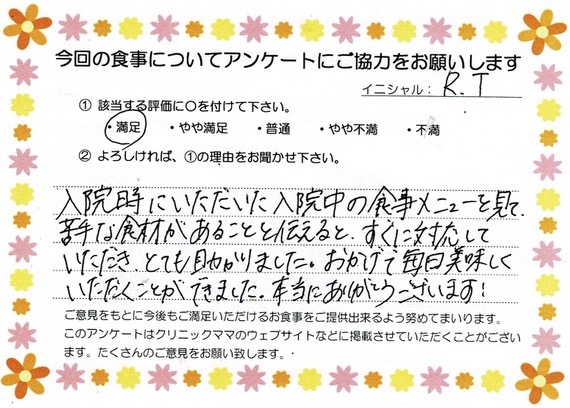 今回の食事についてアンケートにご協力をお願いします
イニシャル: R.T
① 該当する評価に○を付けて下さい。
・満足 ・やや満足 ・普通 ・やや不満 ・不満
② よろしければ、①の理由をお聞かせ下さい。
入院時にいただいた入院中の食事メニューを見て、
苦手な食材があることを伝えると、すぐに対応して
いただき、とても助かりました。おかげで毎日美味しく
いただくことができました。本当にありがとうございます!
ご意見をもとに今後もご満足いただけるお食事をご提供出来るよう努めてまいります。
このアンケートはクリニックママのウェブサイトなどに掲載させていただくことがござい
ます。たくさんのご意見をお願い致します。